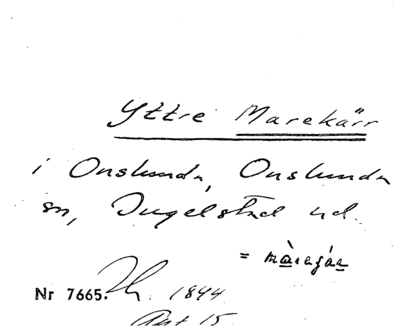 Yttre Marekärr
i Onslunda, Onslunda
sn, Ingelstad hd.
= màragáa
Nr 7665. Th. 1844
Akt 15